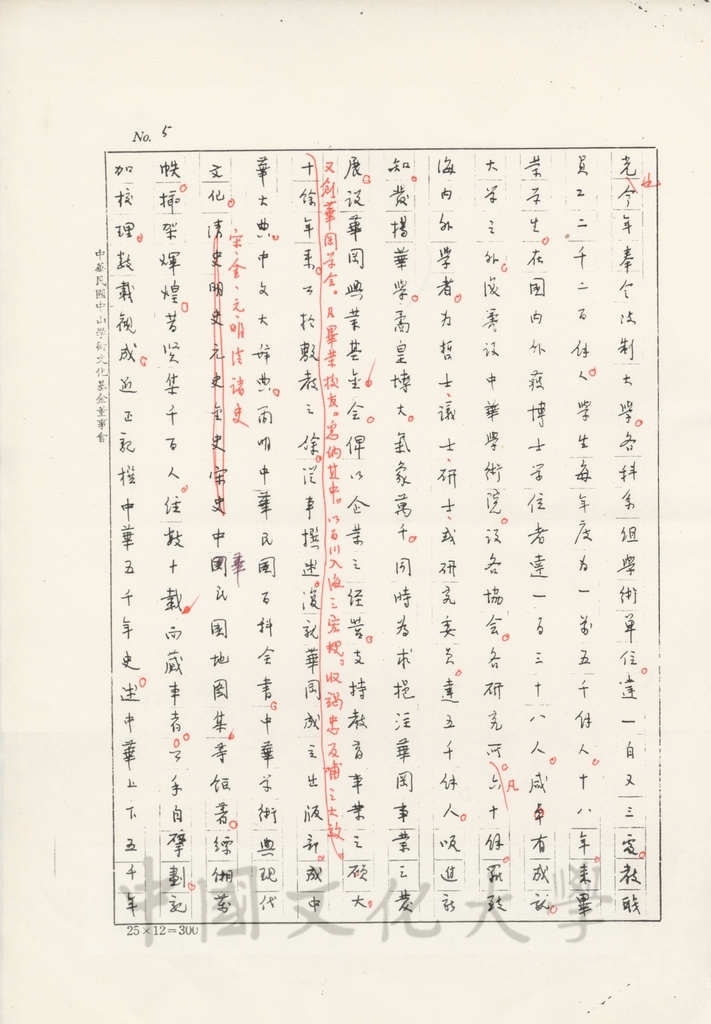 No. 5
光今年奉令改制大學。各科系組學術單位。達一百又三處。教職
也
員工二千二百餘人。學生每年度為一萬五千餘人。十八年來畢
業學生。在國內外獲博士學位者達一百三十八人。咸卓有成就。
大學之外。復籌設中華學術院。設各協會。各研究所。六十餘。羅致
凡
海內外學者。為哲士、議士、研士、或研究委員。達五千餘人。吸進新
知。發揚華學。矞皇博大。氣象萬千。同時為求挹注華岡事業之發
展。設華岡興業基金會。俾以企業之經營。支持教育事業之碩大。
又創華岡學會。凡畢業校友。悉納其中。以百川入海之宏規。收竭忠反哺之大效。
十餘年來。公於敷教之餘。從事撰述。復就華岡成立出版部。成中
華大典。中文大辭典。簡明中華民國百科全書。中華學術與現代
文化。清史明史元史金史宋史中國民國地圖集等鉅著。縹緗萬
宋、金、元、明、清諸史
華
帙。插架輝煌。昔賢集千百人。任數十載而蕆事者。公手自擘劃。記
加校理。數載觀成。近正記撰中華五千年史。述中華上下五千年
中華民國中山學術文化基金董事會
25×12=300
中國文化大學